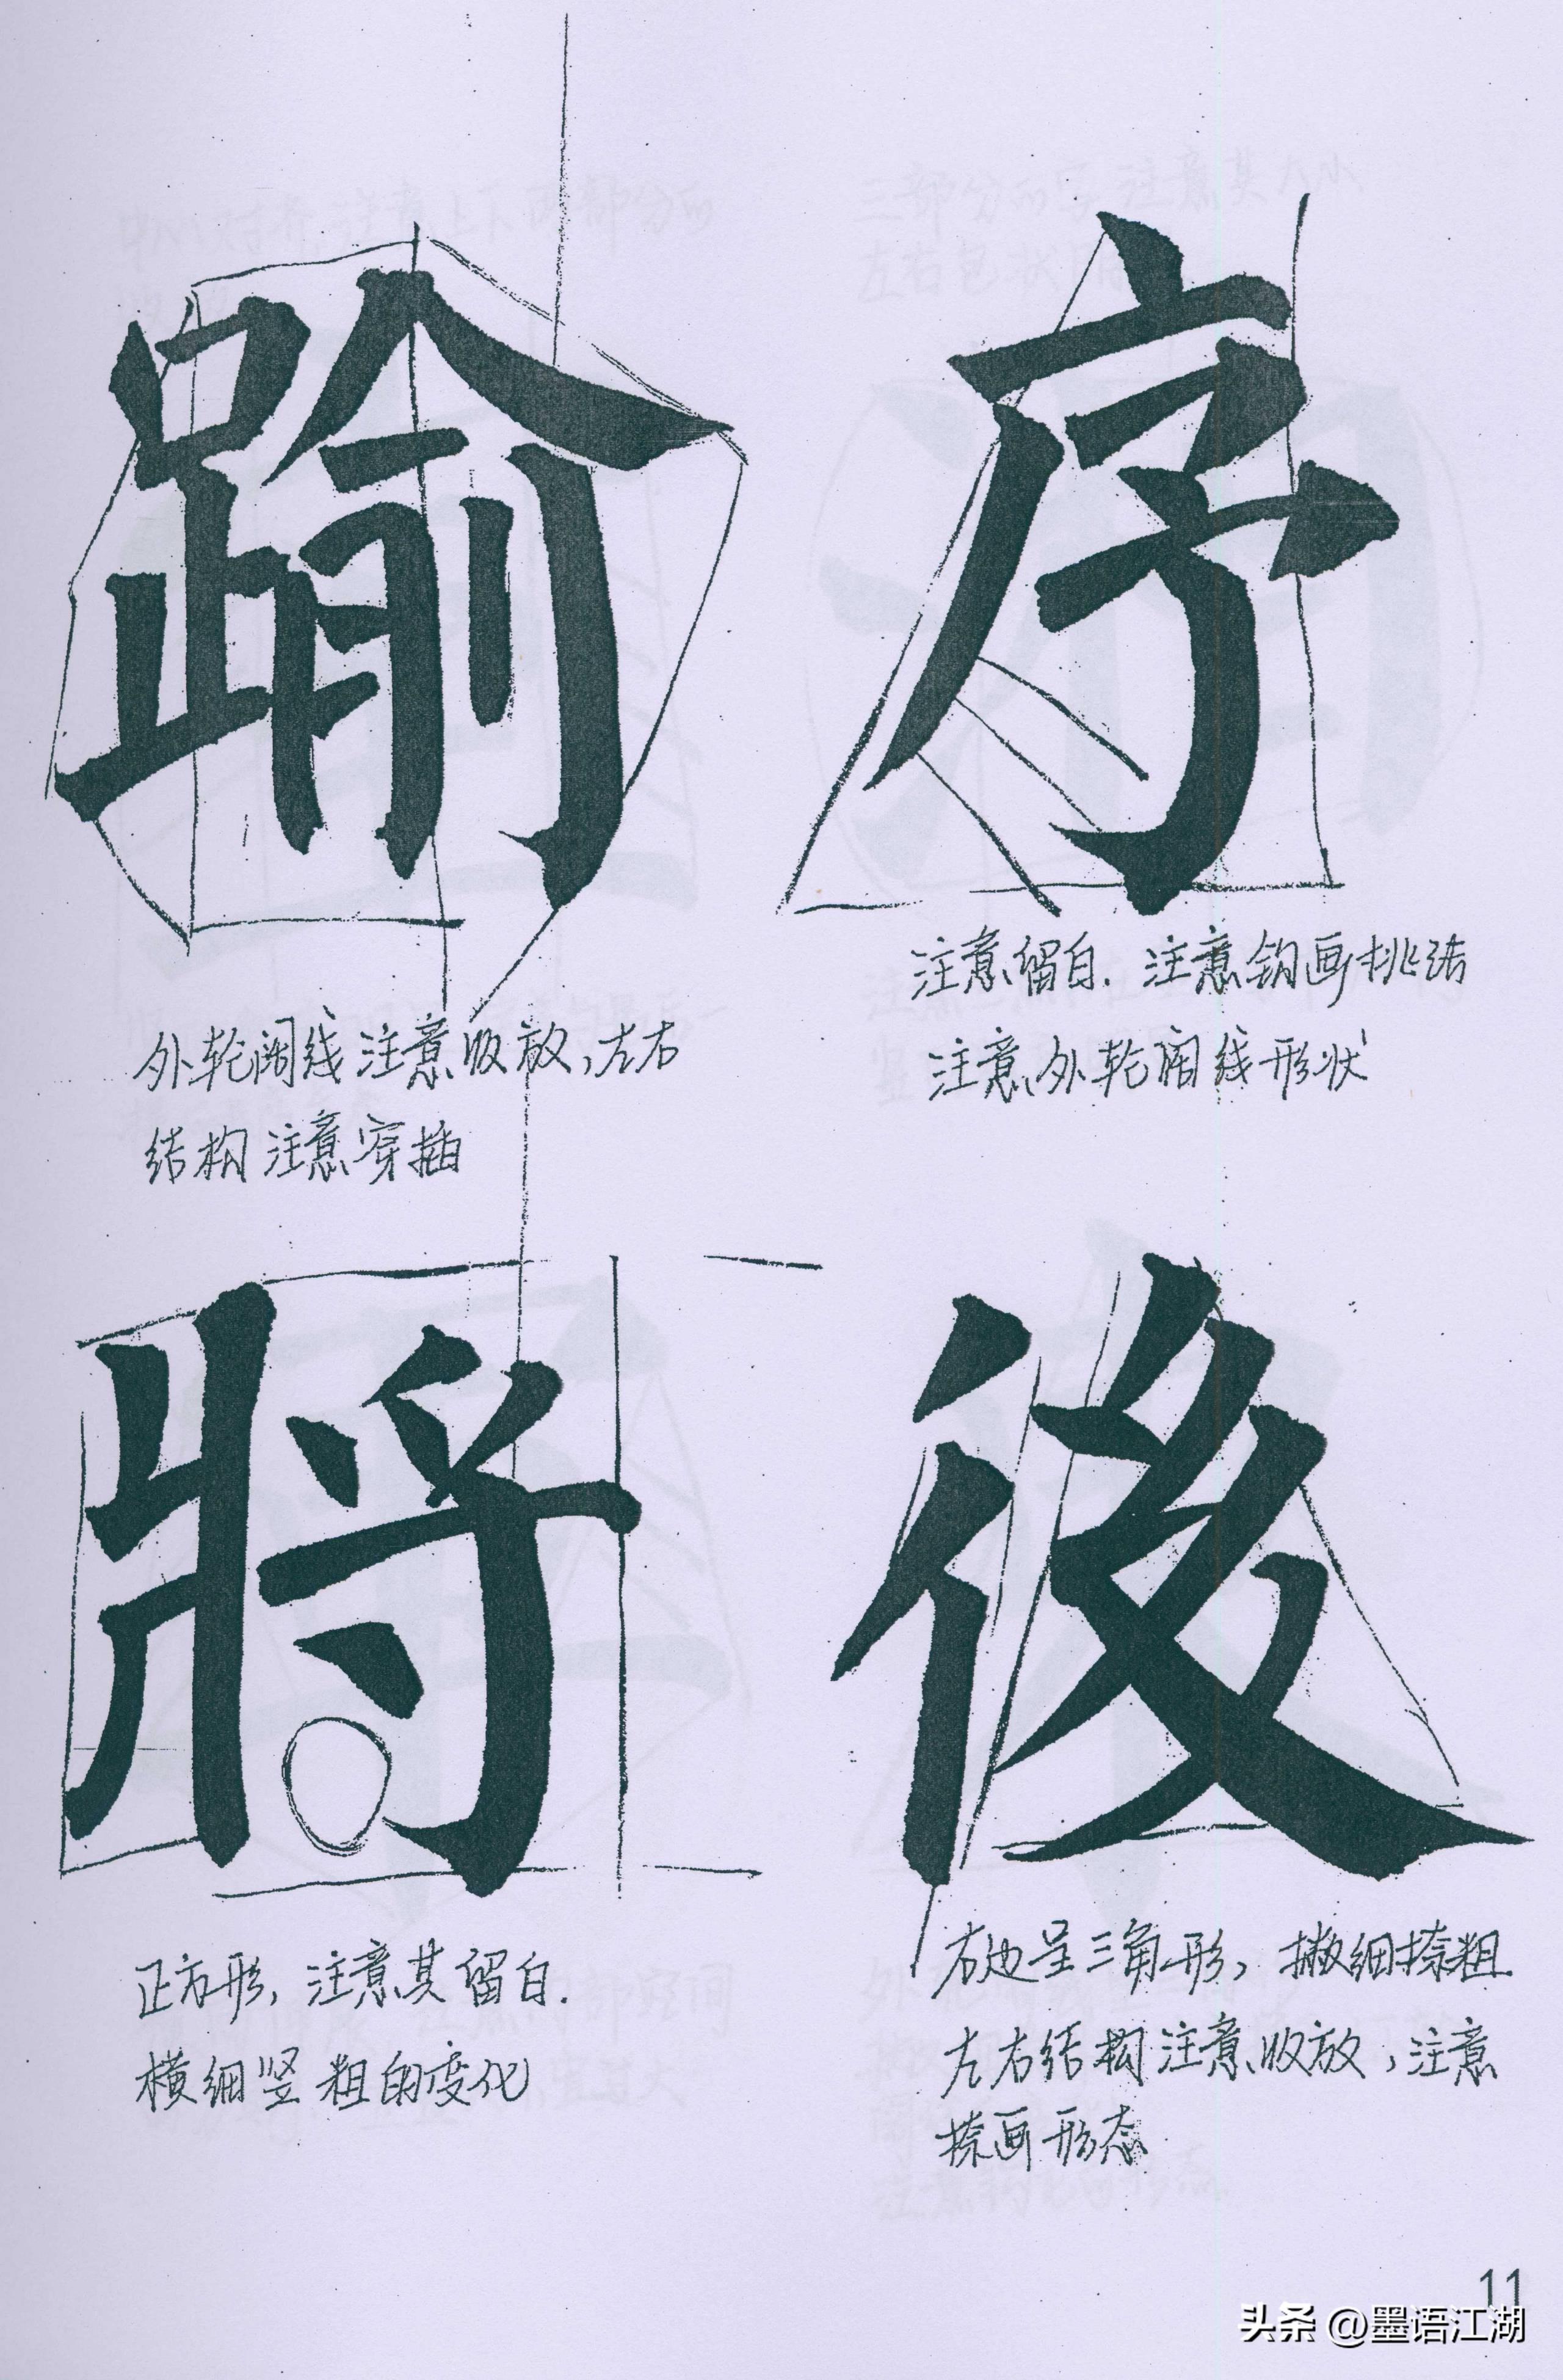 踰
序
外轮阔线注意收放,左右
结构注意穿插
注意留白.注意钩画挑法
注意外轮阔线形状
將
後
正方形,注意其留白.
横细竖粗的变化
右边呈三角形,撇细捺粗.
左右结构注意收放,注意
捺画形态
11
头条 @墨语江湖